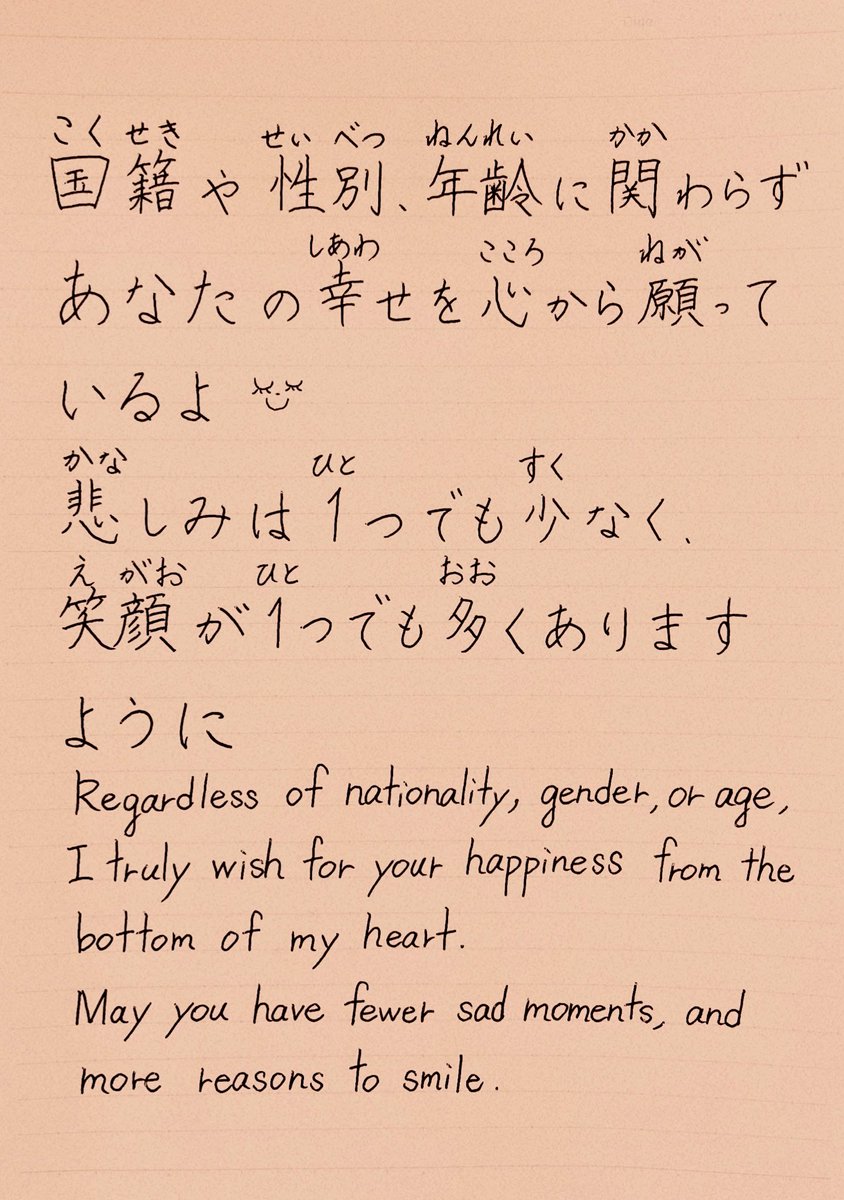 こく せき せい べつ ねんれい かか
国籍や性別、年齢に関わらず
しあわ こころ ねが
あなたの幸せを心から願って
いるよ
かな ひと すく
悲しみは1つでも少なく、
え がお ひと おお
笑顔が1つでも多くあります
ように
Regardless of nationality, gender, or age,
I truly wish for your happiness from the
bottom of my heart.
May you have fewer sad moments, and
more reasons to smile.